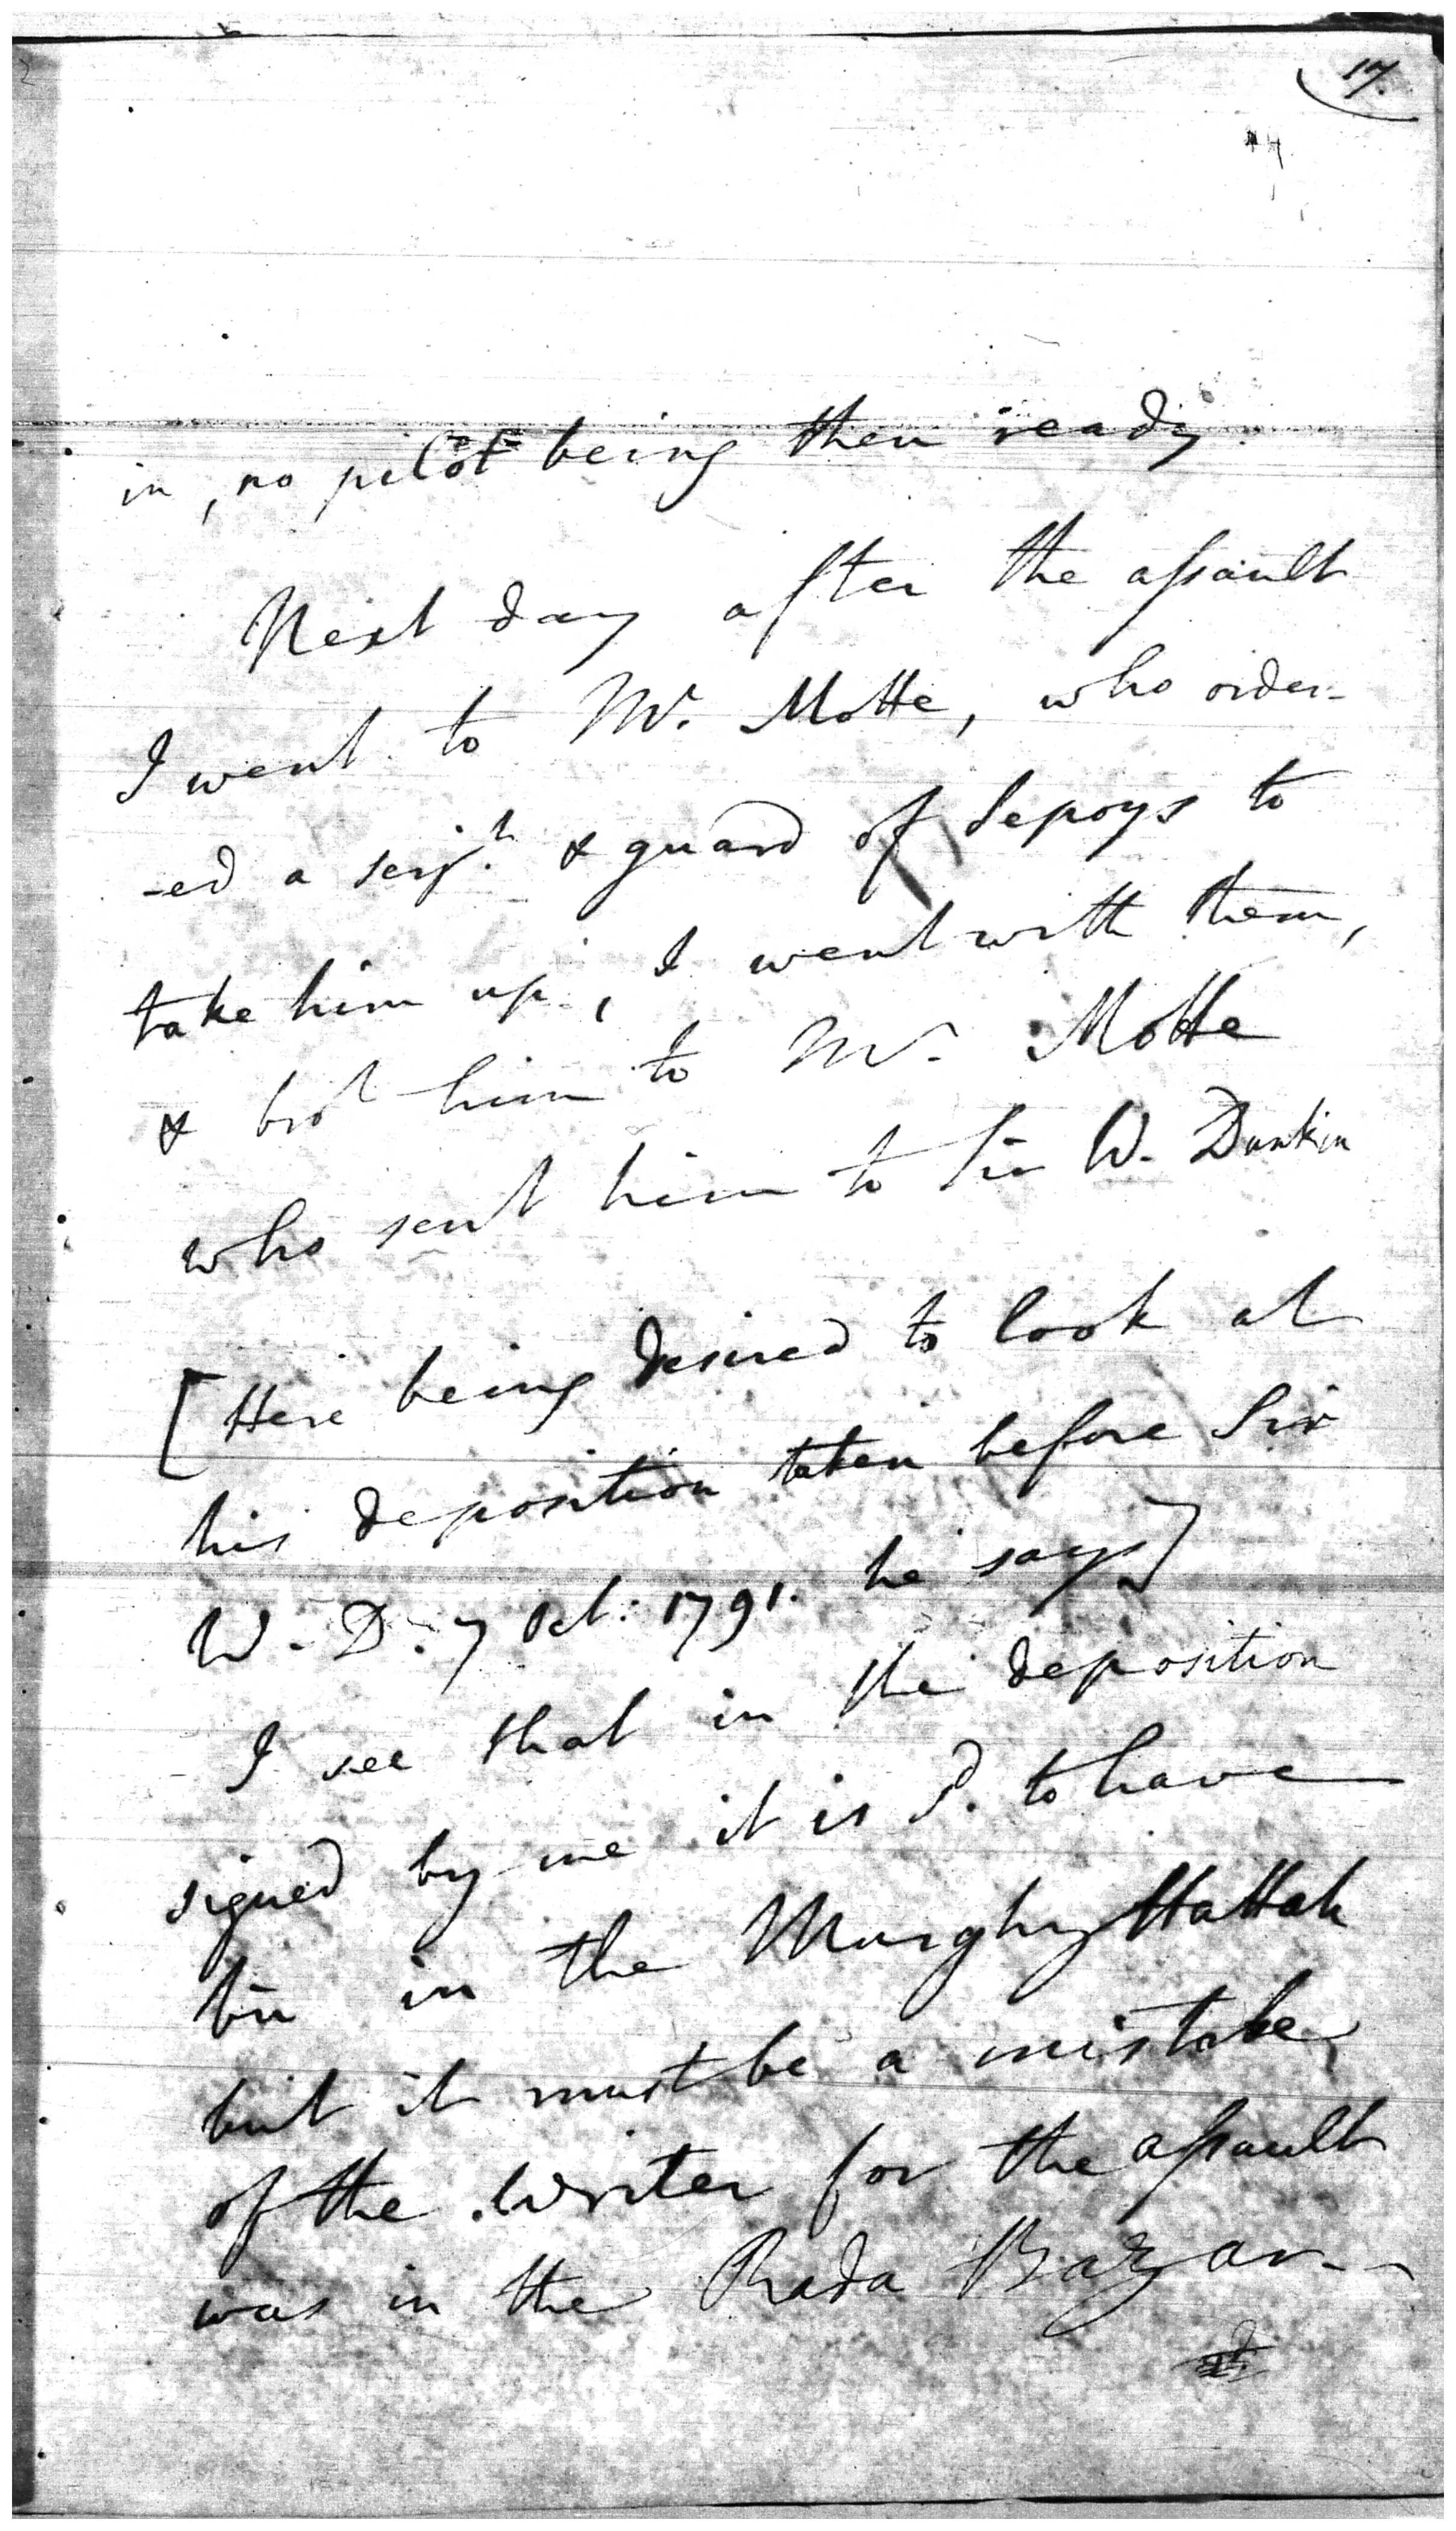 17.
in, no pilot being then ready.
Next day after the assault
I went to Mr. Motte, who order-
-ed a serjt. & guard of Sepoys to
take him up, I went with them,
& brot him to Mr. Motte
who sent him to Sir W. Dunkin
[Here being desired to look at
his deposition taken before Sir
W. D. 7 Oct: 1791. he says]
I see that in the deposition
signed by me it is sd. to have
bn in the Murghy Hattah
but it must be a mistake
of the writer for the assault
was in the Rada Bazar--